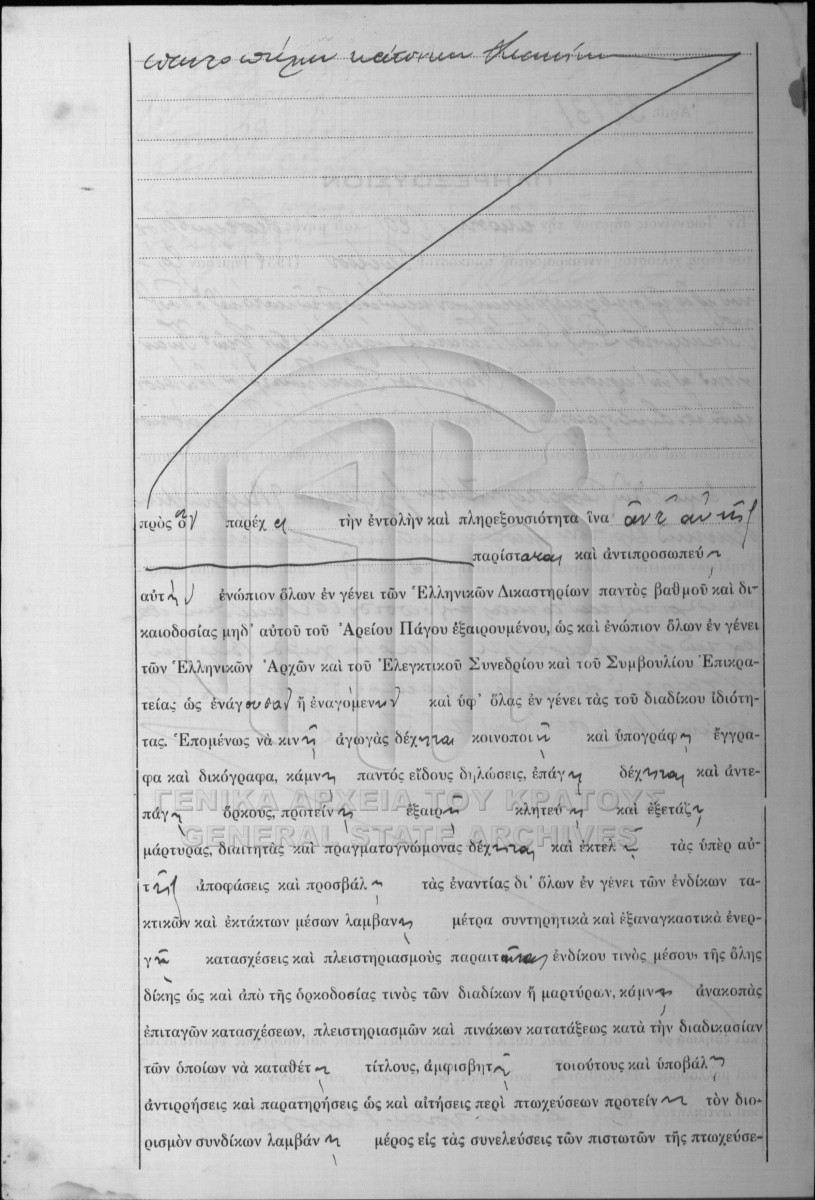 κάτοικον
πρὸς ὃν παρέχει τὴν ἐντολὴν καὶ πληρεξουσιότητα ἵνα ἀντ' αὐτῆς
παρίσταται καὶ ἀντιπροσωπεύῃ
αὐτὴν ἐνώπιον ὅλων ἐν γένει τῶν Ἑλληνικῶν Δικαστηρίων παντὸς βαθμοῦ καὶ δι-
καιοδοσίας μηδ' αὐτοῦ τοῦ Ἀρείου Πάγου ἐξαιρουμένου, ὡς καὶ ἐνώπιον ὅλων ἐν γένει
τῶν Ἑλληνικῶν Ἀρχῶν καὶ τοῦ Ἐλεγκτικοῦ Συνεδρίου καὶ τοῦ Συμβουλίου Ἐπικρα-
τείας ὡς ἐνάγουσαν ἢ ἐναγόμενην καὶ ὑφ' ὅλας ἐν γένει τὰς τοῦ διαδίκου ἰδιότη-
τας. Ἑπομένως νὰ κινῇ ἀγωγὰς δέχηται κοινοποιῇ καὶ ὑπογράφῃ ἔγγρα-
φα καὶ δικόγραφα, κάμνῃ παντὸς εἴδους δηλώσεις, ἐπάγῃ δέχηται καὶ ἀντε-
πάγῃ ὅρκους, προτείνῃ ἐξαιρῇ κλητεύῃ καὶ ἐξετάζῃ
ΓΕΝΙΚΑ ΑΡΧΕΙΑ ΤΟΥ ΚΡΑΤΟΥΣ
GENERAL STATE ARCHIVES
μάρτυρας, διαιτητὰς καὶ πραγματογνώμονας δέχηται καὶ ἐκτελῇ τὰς ὑπὲρ αὐ-
τῆς ἀποφάσεις καὶ προσβάλῃ τὰς ἐναντίας δι' ὅλων ἐν γένει τῶν ἐνδίκων τα-
κτικῶν καὶ ἐκτάκτων μέσων λαμβανῃ μέτρα συντηρητικὰ καὶ ἐξαναγκαστικὰ ἐνερ-
γῇ κατασχέσεις καὶ πλειστηριασμοὺς παραιτῆται ἐνδίκου τινὸς μέσου, τῆς ὅλης
δίκης ὡς καὶ ἀπὸ τῆς ὁρκοδοσίας τινὸς τῶν διαδίκων ἢ μαρτύρων, κάμνῃ ἀνακοπὰς
ἐπιταγῶν κατασχέσεων, πλειστηριασμῶν καὶ πινάκων κατατάξεως κατὰ τὴν διαδικασίαν
τῶν ὁποίων νὰ καταθέτῃ τίτλους, ἀμφισβητῇ τοιούτους καὶ ὑποβάλῃ
ἀντιρρήσεις καὶ παρατηρήσεις ὡς καὶ αἰτήσεις περὶ πτωχεύσεων προτείνῃ τὸν διο-
ρισμὸν συνδίκων λαμβάνῃ μέρος εἰς τὰς συνελεύσεις τῶν πιστωτῶν τῆς πτωχεύσε-